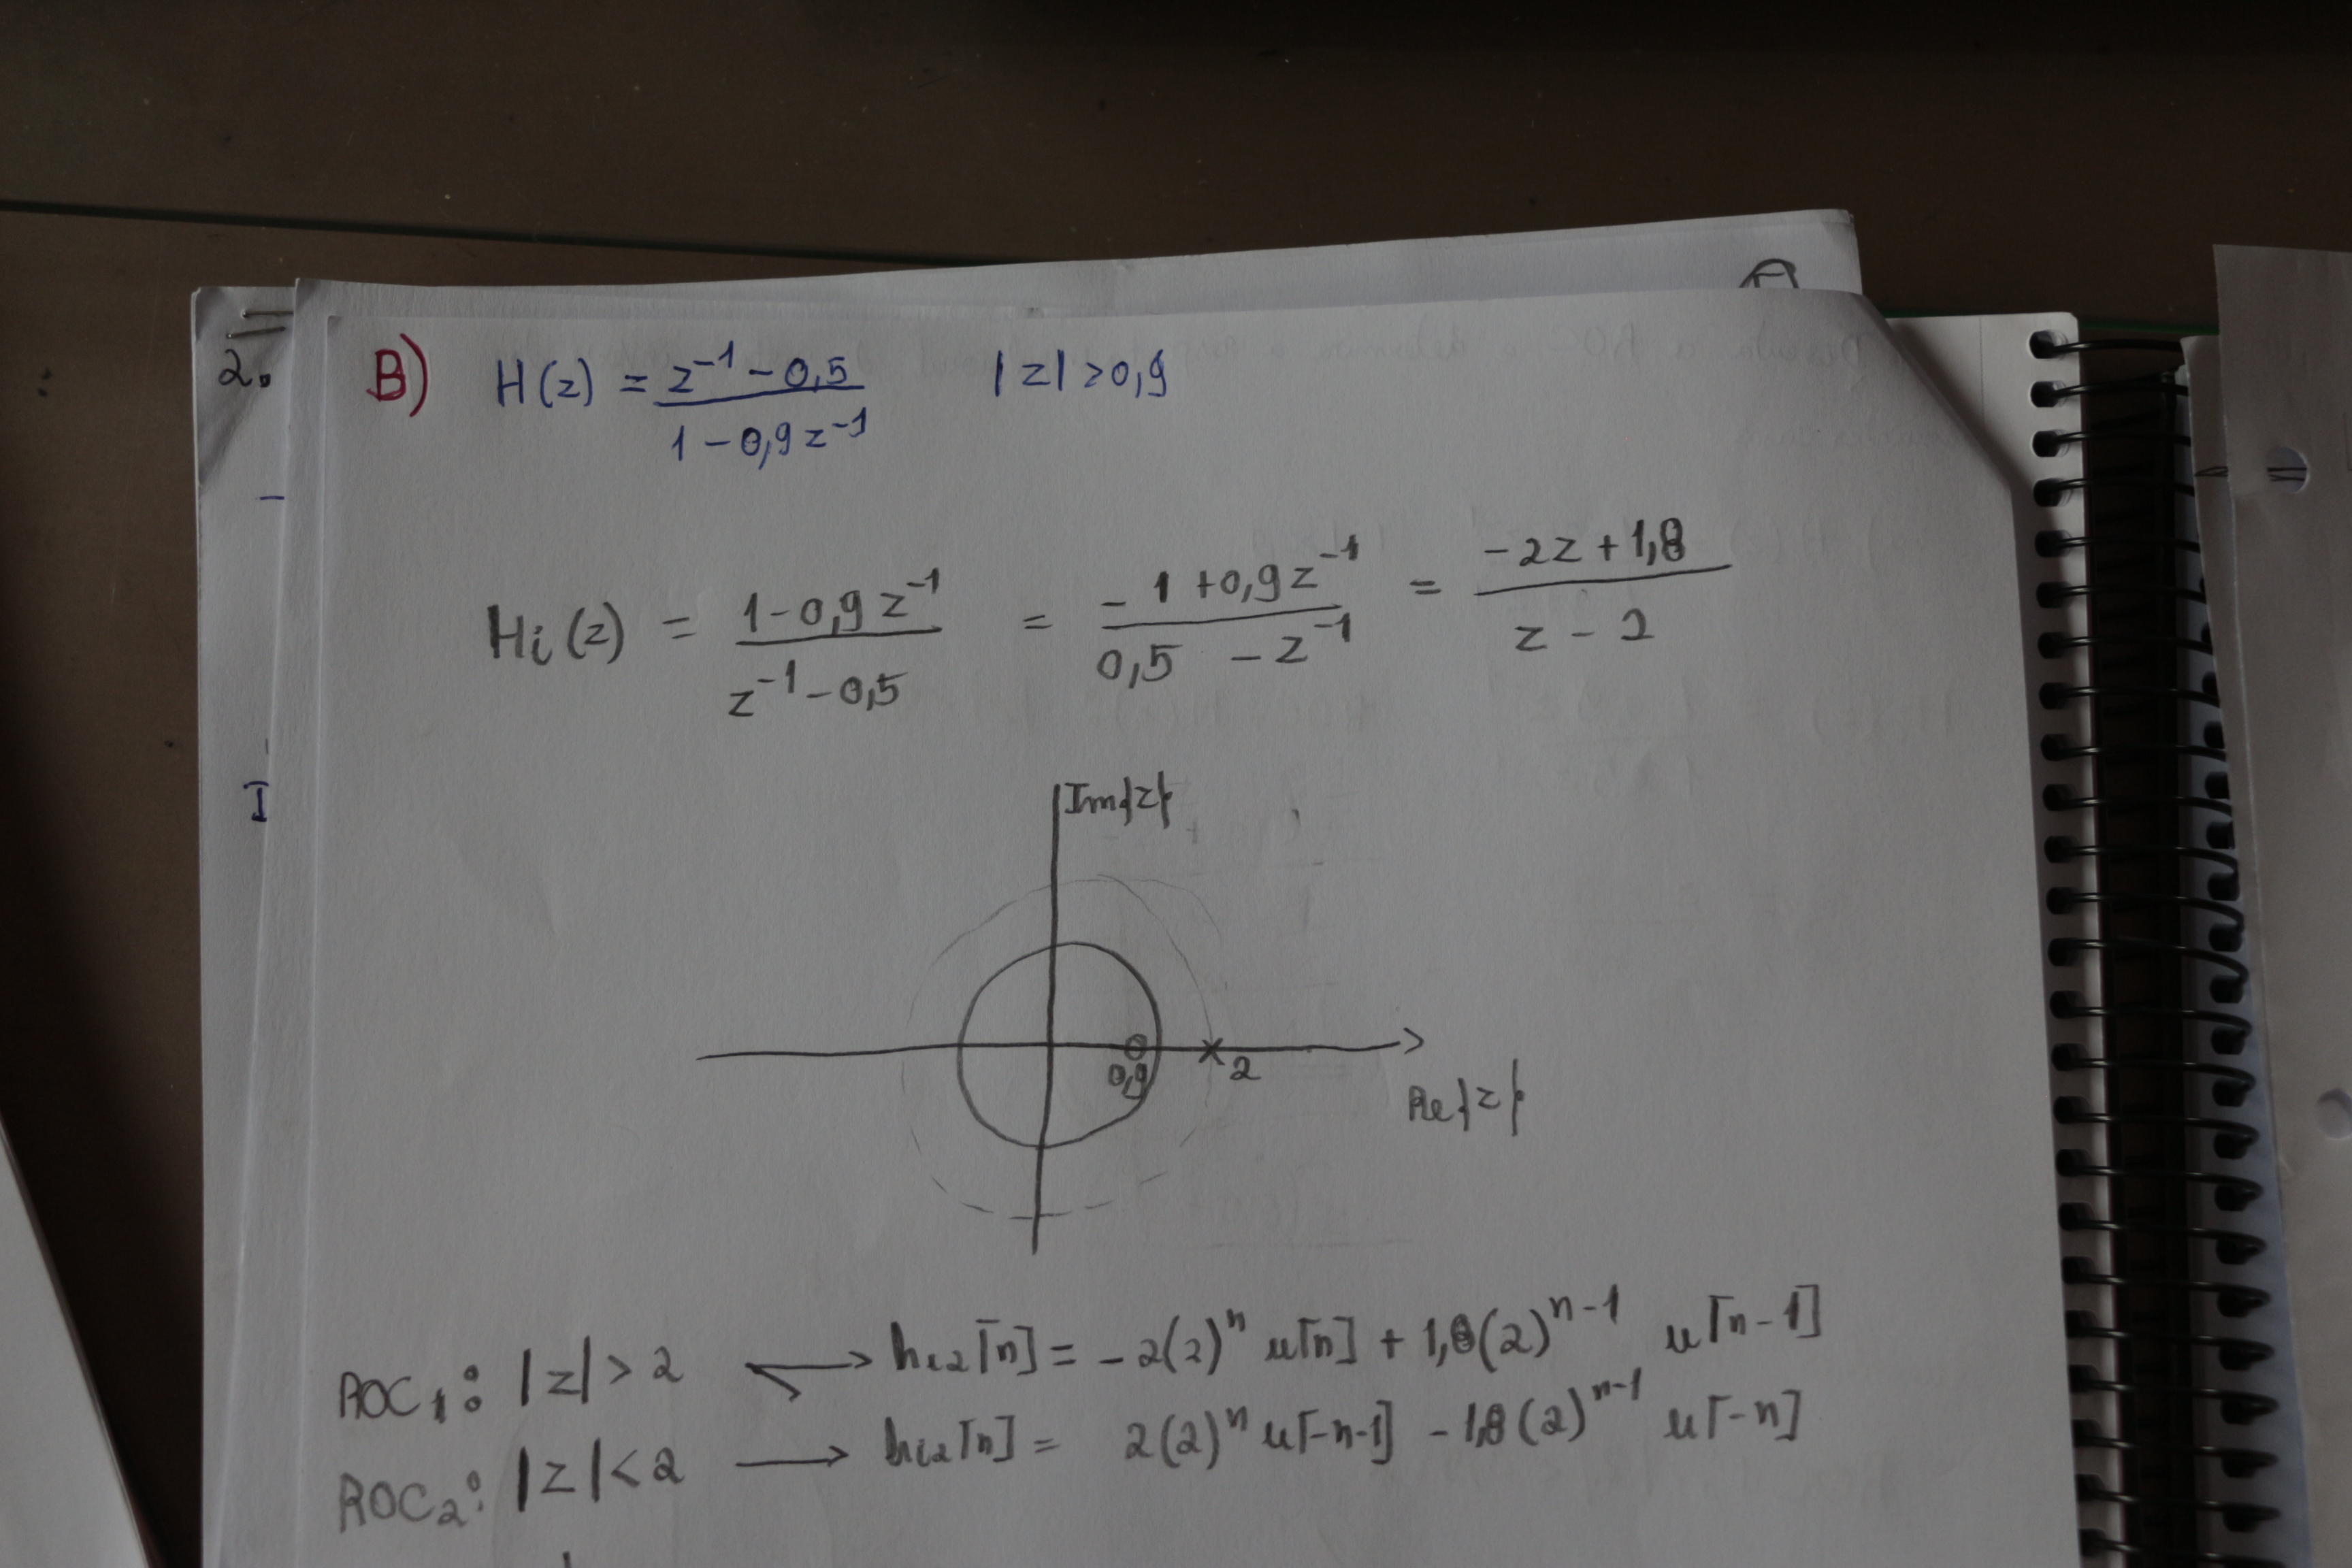 2. B) H(z) = (z⁻¹ - 0,5)/(1 - 0,9z⁻¹) |z| > 0,9
Hi(z) = (1 - 0,9z⁻¹)/(z⁻¹ - 0,5) = (-1 + 0,9z⁻¹)/(0,5 - z⁻¹) = (-2z + 1,8)/(z - 2)
I
Im{z}
0,9 2
Re{z}
ROC₁: |z| > 2 → hi2[n] = -2(2)ⁿ u[n] + 1,8(2)ⁿ⁻¹ u[n-1]
ROC₂: |z| < 2 → hi2[n] = 2(2)ⁿ u[-n-1] - 1,8(2)ⁿ⁻¹ u[-n]